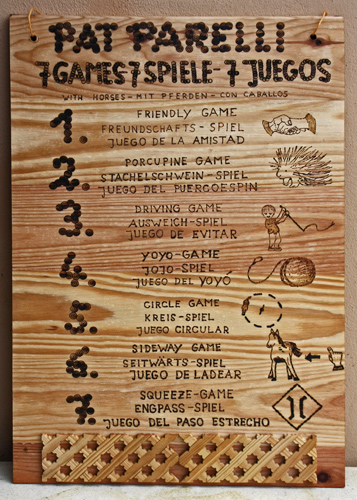 PAT PARELLI
7 GAMES 7 SPIELE - 7 JUEGOS
WITH HORSES - MIT PFERDEN - CON CABALLOS
1. FRIENDLY GAME
FREUNDSCHAFTS - SPIEL
JUEGO DE LA AMISTAD
2. PORCUPINE GAME
STACHELSCHWEIN - SPIEL
JUEGO DEL PUERCOESPIN
3. DRIVING GAME
AUSWEICH - SPIEL
JUEGO DE EVITAR
4. YOYO - GAME
JOJO - SPIEL
JUEGO DEL YOYÓ
5. CIRCLE GAME
KREIS - SPIEL
JUEGO CIRCULAR
6. SIDEWAY GAME
SEITWÄRTS - SPIEL
JUEGO DE LADEAR
7. SQUEEZE - GAME
ENGPASS - SPIEL
JUEGO DEL PASO ESTRECHO